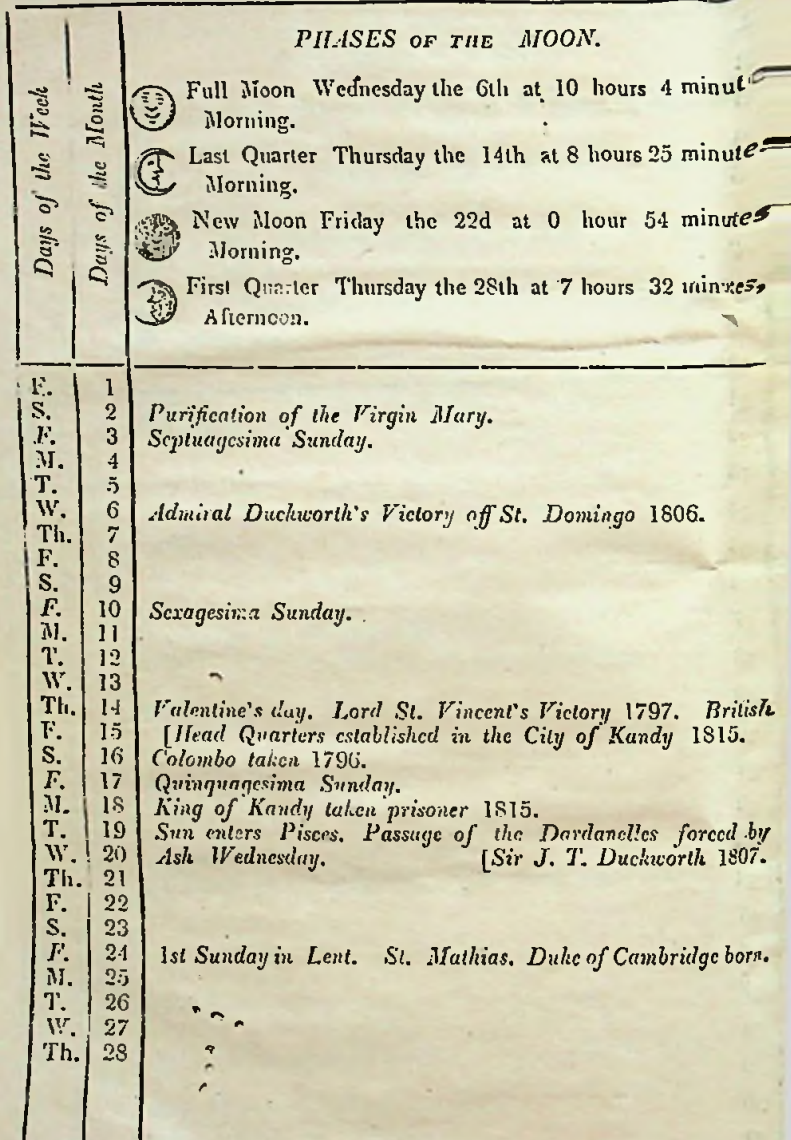 PHASES OF THE MOON.
Days of the Week
Days of the Month
Full Moon Wednesday the 6th at 10 hours 4 minut
Morning.
Last Quarter Thursday the 14th at 8 hours 25 minute
Morning.
New Moon Friday the 22d at 0 hour 54 minutes
Morning.
First Quarter Thursday the 28th at 7 hours 32 minutes,
Afternoon.
F. 1
S. 2 Purification of the Virgin Mary.
F. 3 Septuagesima Sunday.
M. 4
T. 5
W. 6 Admiral Duckworth's Victory off St. Domingo 1806.
Th. 7
F. 8
S. 9
F. 10 Sexagesima Sunday.
M. 11
T. 12
W. 13
Th. 14 Valentine's day. Lord St. Vincent's Victory 1797. British
F. 15 [Head Quarters established in the City of Kandy 1815.
S. 16 Colombo taken 1796.
F. 17 Quinquagesima Sunday.
M. 18 King of Kandy taken prisoner 1815.
T. 19 Sun enters Pisces. Passage of the Dardanelles forced by
W. 20 Ash Wednesday. [Sir J. T. Duckworth 1807.
Th. 21
F. 22
S. 23
F. 24 1st Sunday in Lent. St. Mathias. Duke of Cambridge born.
M. 25
T. 26
W. 27
Th. 28